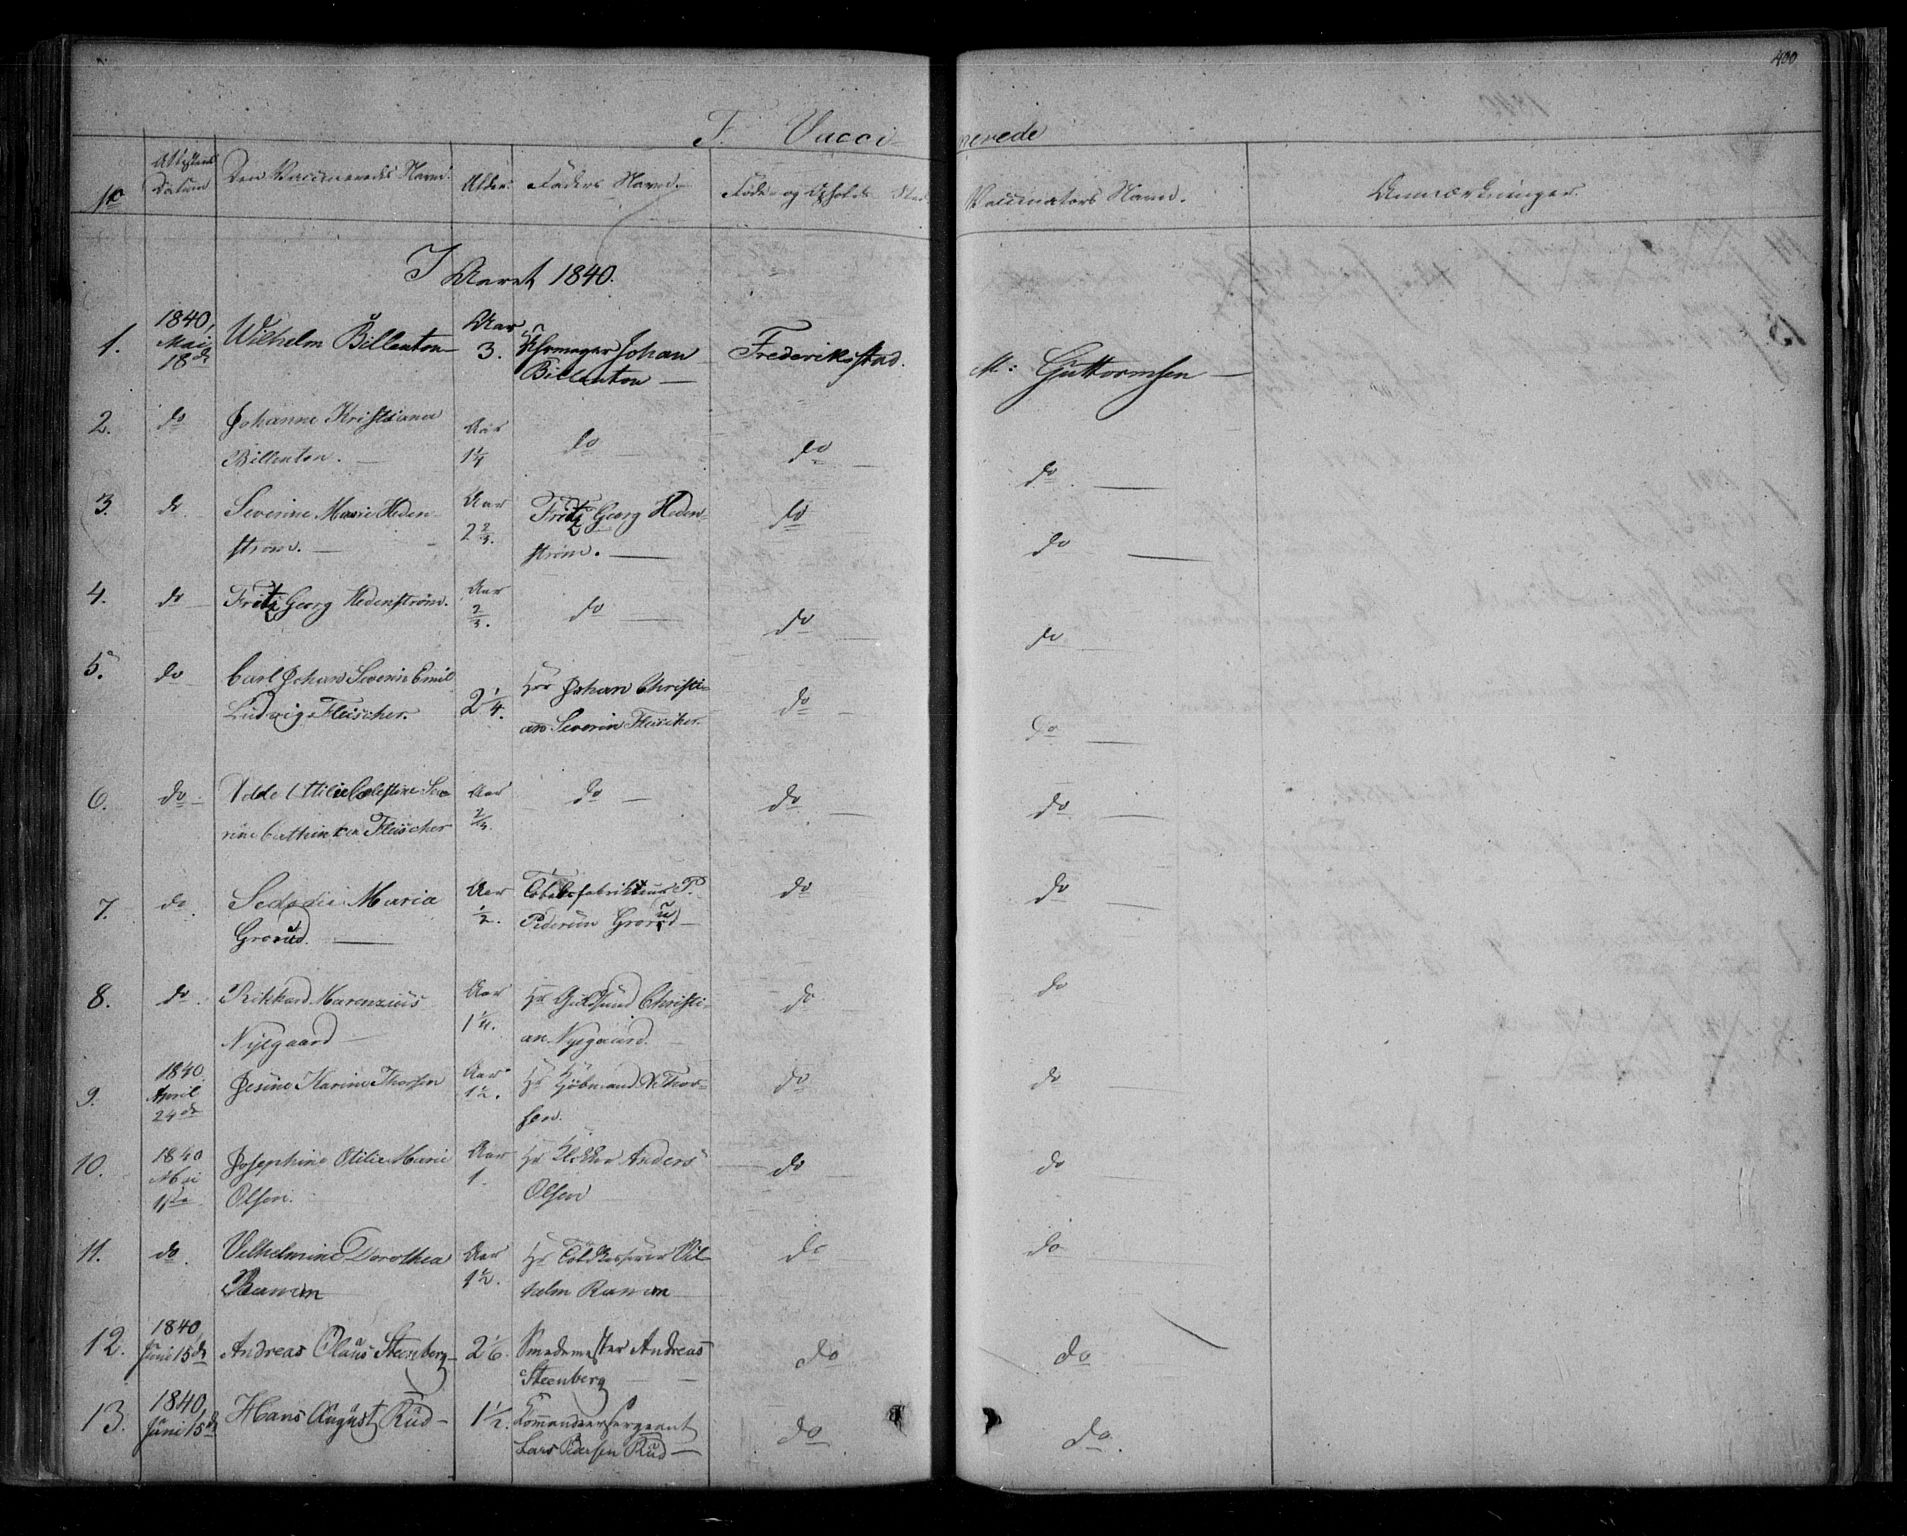 400
F. Vaccinerede
No Attestens Datum Den Vaccineredes Navn. Alder. Faders Navn. Føde- og Opholds Sted. Vaccinators Navn. Anmærkninger.
I Aaret 1840.
1. 1840, Mai 18de Wilhelm Billenton Aar 3. Johan Billenton — Frederiksstad. M: Guttormsen —
2. do Johanne Kristiana Billenton. — Aar 1 1/4 do — do — do —
3. do Severine Marie Hedenstrøm. — Aar 2 2/3. Fritz Georg Hedenstrøm. — do do —
4. do Fritz Georg Hedenstrøm. Aar 2/3. do — do — do
5. do Carl Johan Severin Emil Ludvig Fleischer. 2 1/4. Hr Johan Christian Severin Fleischer. do — do —
6. do Otilie Celestine Severine Cathinka Fleischer Aar 2/3. do — do — do —
7. do Maria Grorud. — Aar 1/2. P. Grorud — do do —
8. do Rikhard Marenzius Nysgaard — Aar 1 1/4. Hr Christian Nysgaard. do do
9. 1840 April 24de Jesine Karine Thorsen Aar 1 1/2. Hr Kjøbmand Thorsen. do do —
10. 1840 Mai 1ste Josephine Otilie Marie Olsen. Aar 1. Hr Anders Olsen — do do
11. do. Vilhelmine Dorothea Ramm Aar 1 1/2. Hr Toldkasserer Vilhelm Ramm do — do —
12. 1840, Juni 15de Andreas Olaus Steenberg 2 1/6. Smedemester Andreas Steenberg — do do
13. 1840, Juni 15de Hans August Rud — 1 1/2. Kommandeersergeant Lars Pedersen Rud — do do.